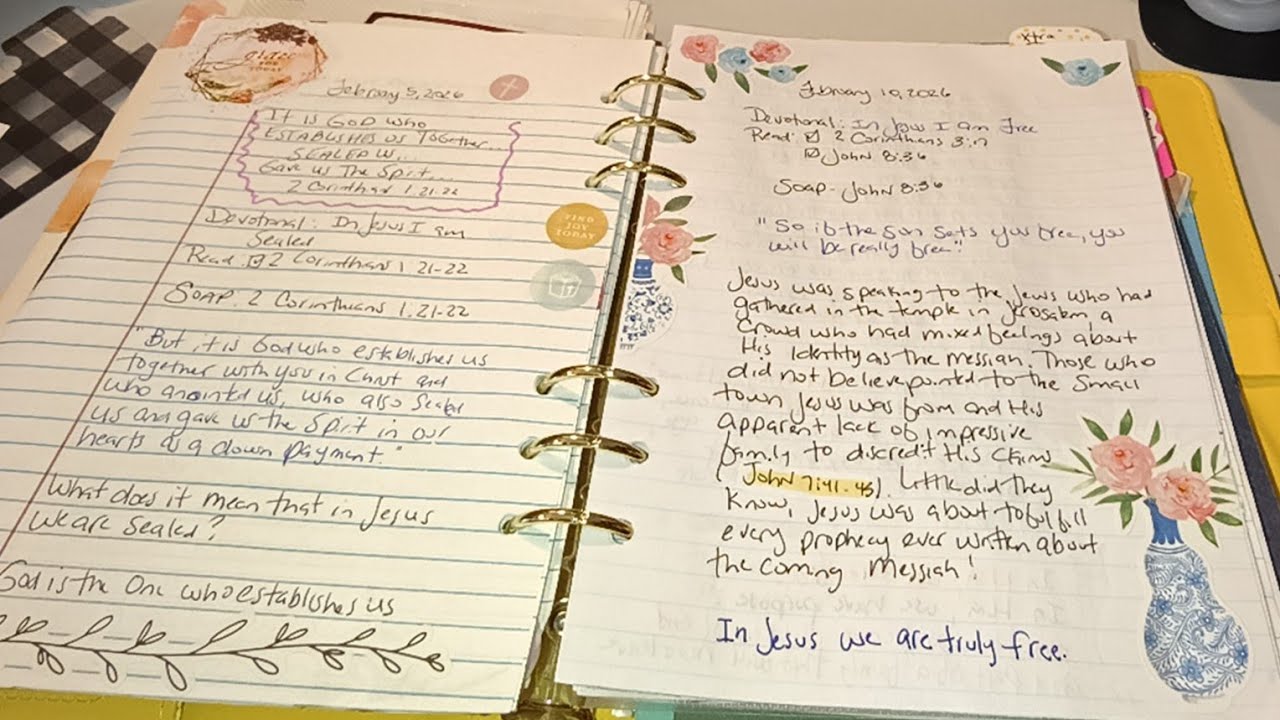 February 5, 2026
It is God who
establishes us together...
sealed us...
Gave us the Spirit...
2 Corinthian 1:21-22
Devotional: In Jesus I am
Sealed
Read: ☑ 2 Corinthians 1:21-22
SOAP: 2 Corinthians 1:21-22
"But it is God who establishes us
together with you in Christ and
who anointed us, who also sealed
us and gave us the Spirit in our
hearts as a down payment."
What does it mean that in Jesus
we are sealed?
God is the One who establishes us
FIND
JOY
TODAY
xtra
February 10, 2026
Devotional: In Jesus I am Free
Read: ☑ 2 Corinthians 3:17
☑ John 8:36
SOAP - John 8:36
"So if the Son sets you free, you
will be really free."
Jesus was speaking to the Jews who had
gathered in the temple in Jerusalem, a
crowd who had mixed feelings about
His identity as the messiah. Those who
did not believe pointed to the small
town Jesus was from and His
apparent lack of impressive
family to discredit His claims
(John 7:41-43). Little did they
know, Jesus was about to fulfill
every prophecy ever written about
the coming Messiah!
In Jesus we are truly free.